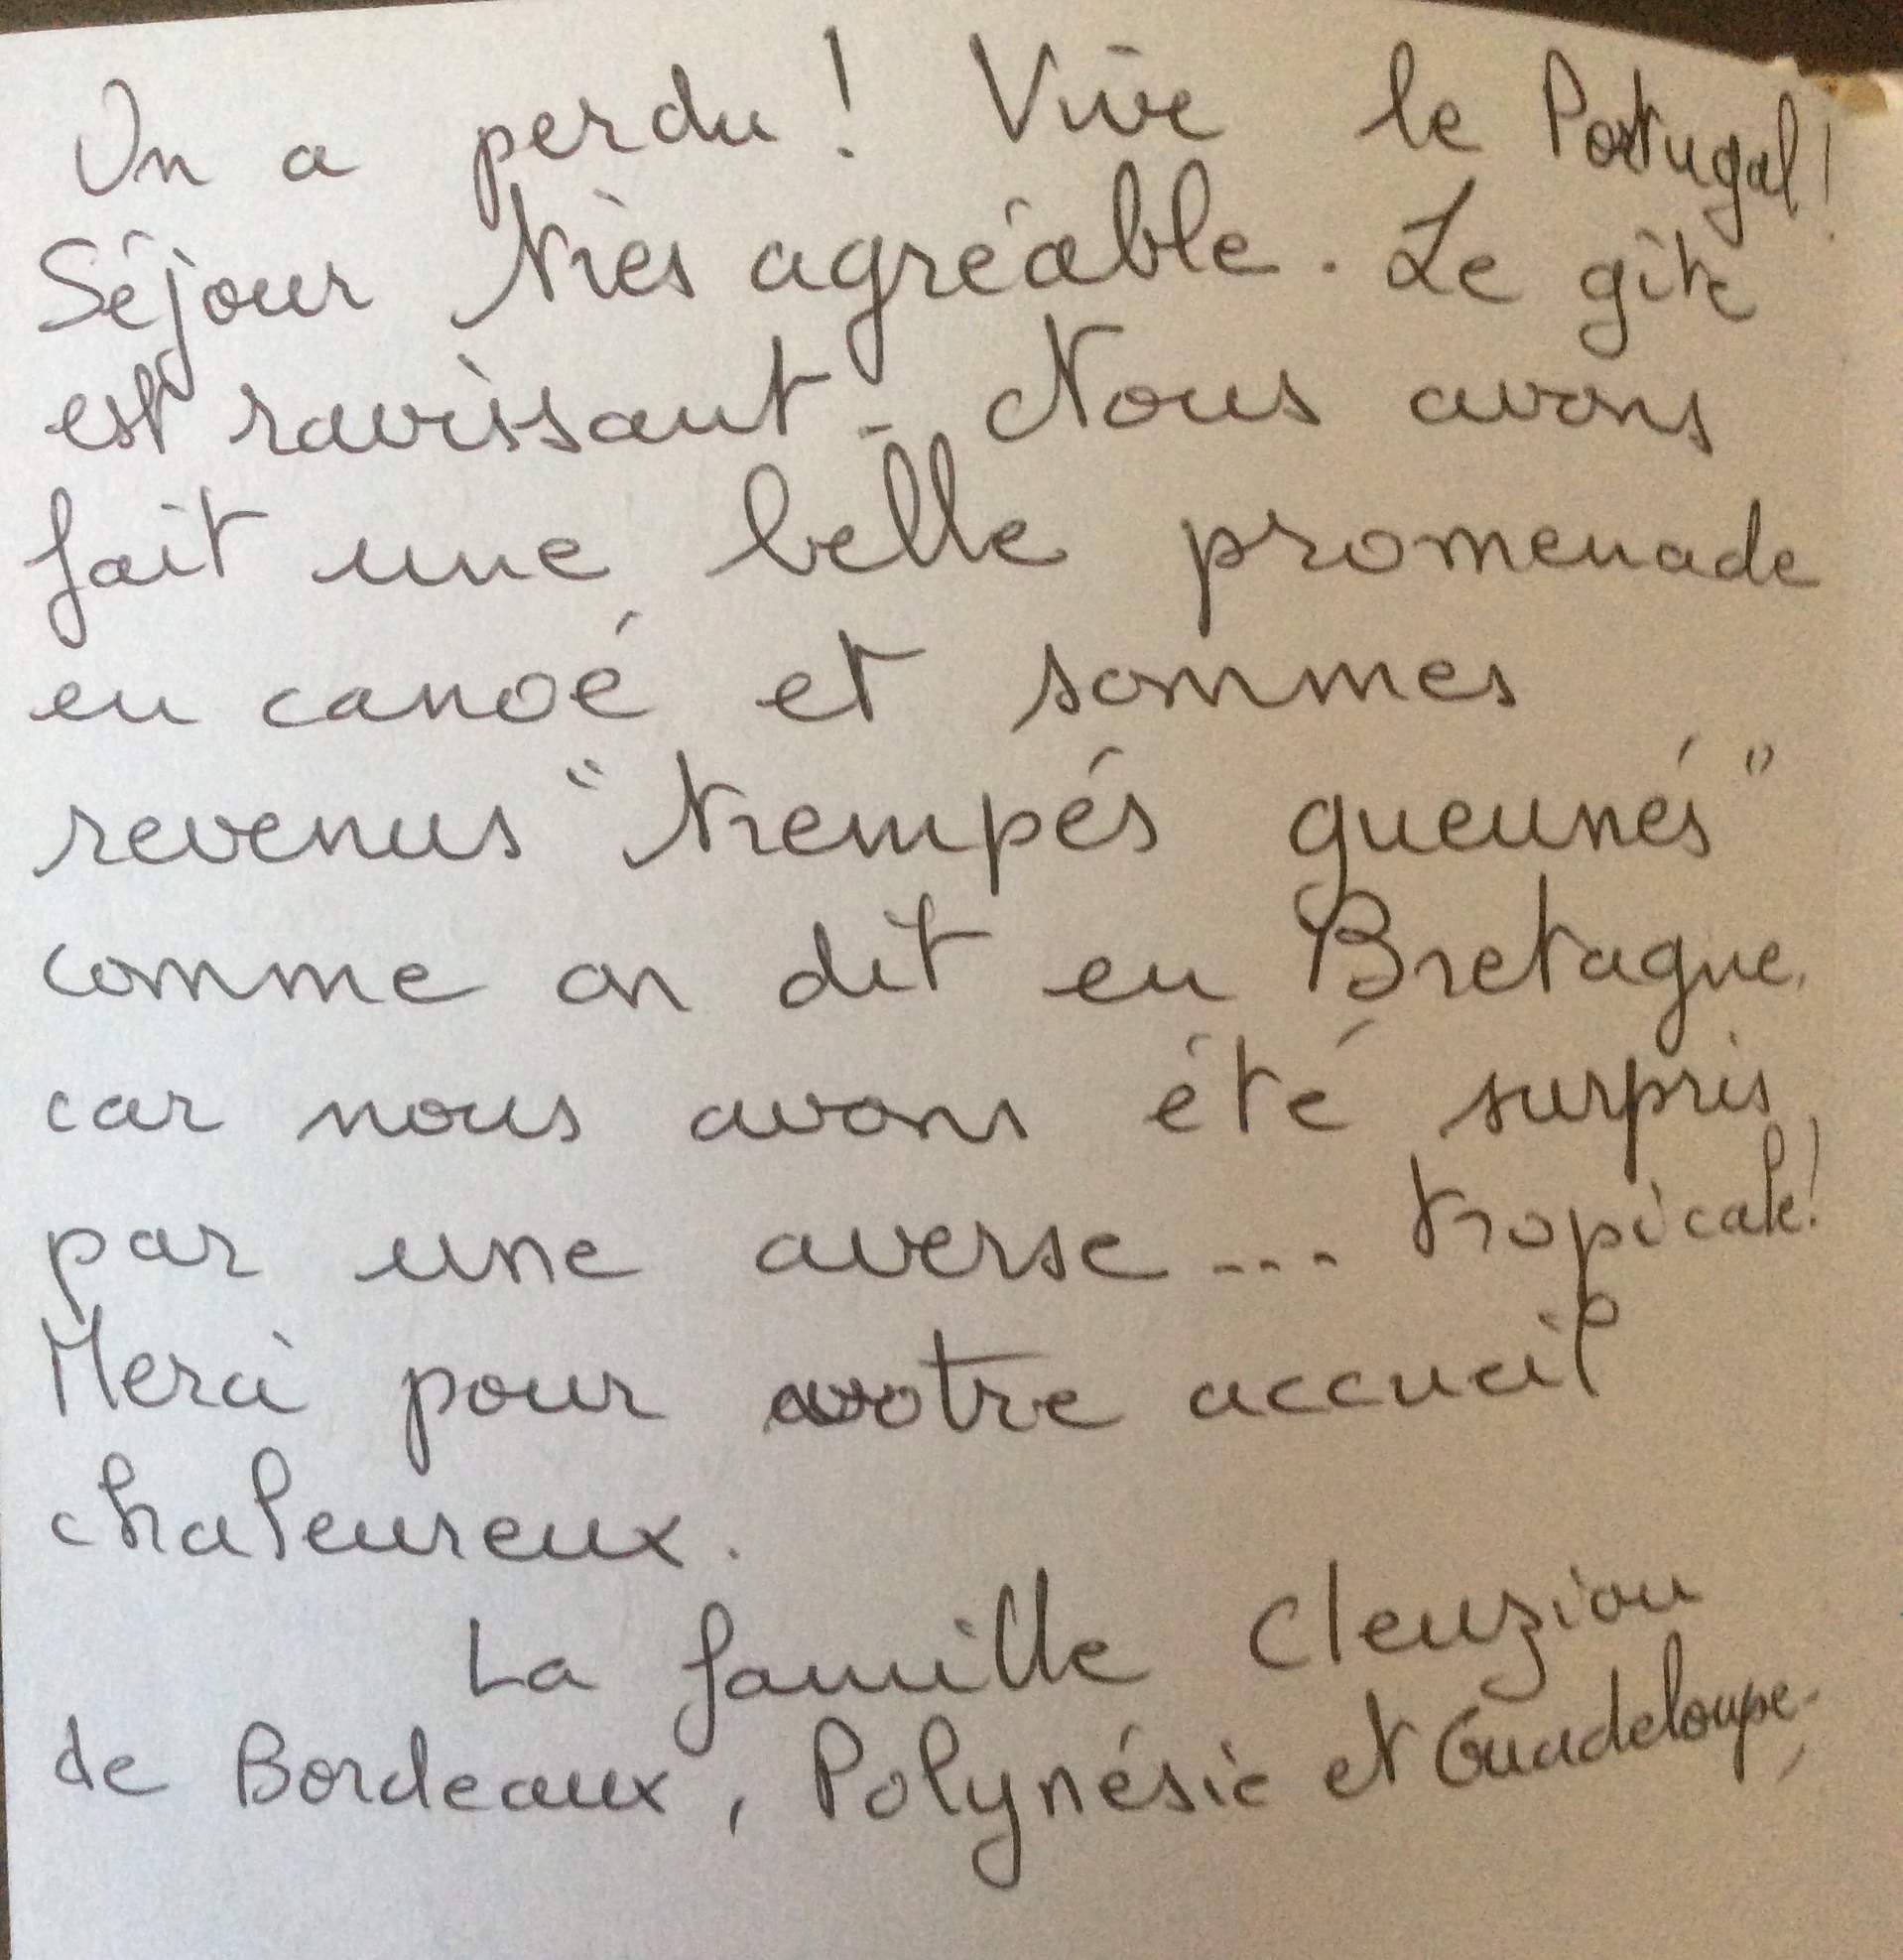 On a perdu ! Vive le Portugal !
Séjour très agréable. Le gîte
est ravissant. Nous avons
fait une belle promenade
en canoé et sommes
revenus "trempés gueunés"
comme on dit en Bretagne.
car nous avons été surpris
par une averse... tropicale !
Merci pour votre accueil
chaleureux.
La famille Cleuziou
de Bordeaux, Polynésie et Guadeloupe.